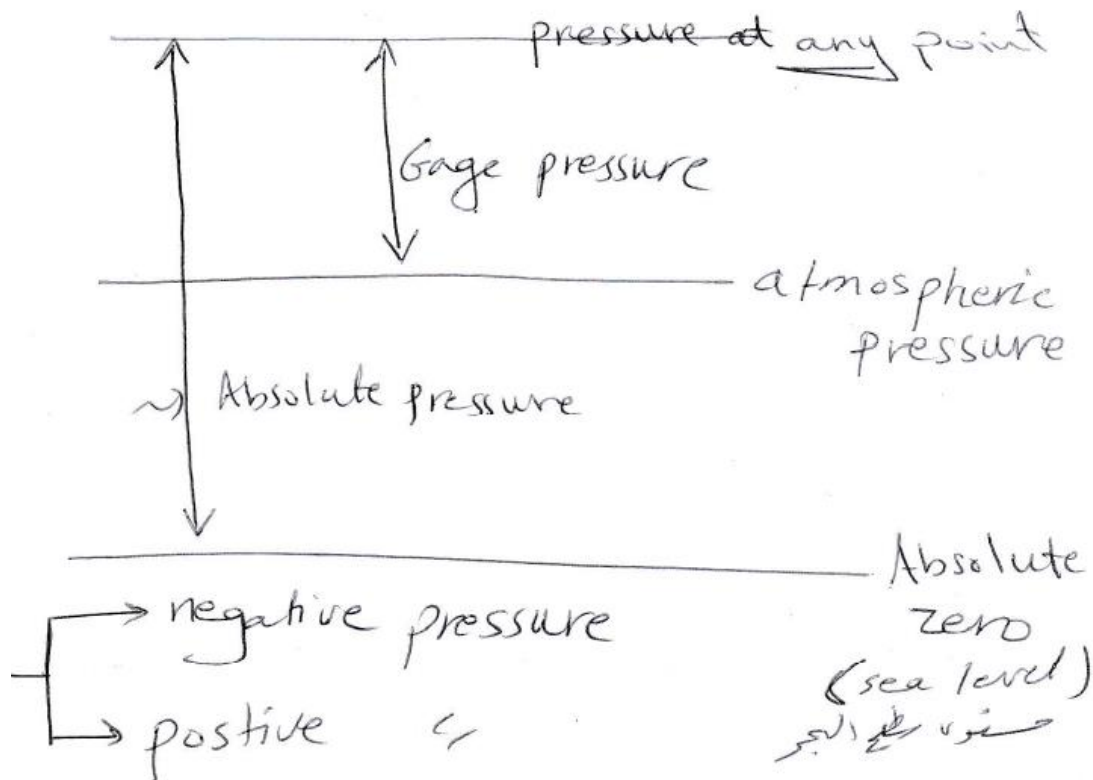 pressure at any point
Gage pressure
atmospheric
pressure
Absolute pressure
Absolute
zero
(sea level)
مستوى سطح البحر
negative pressure
postive "